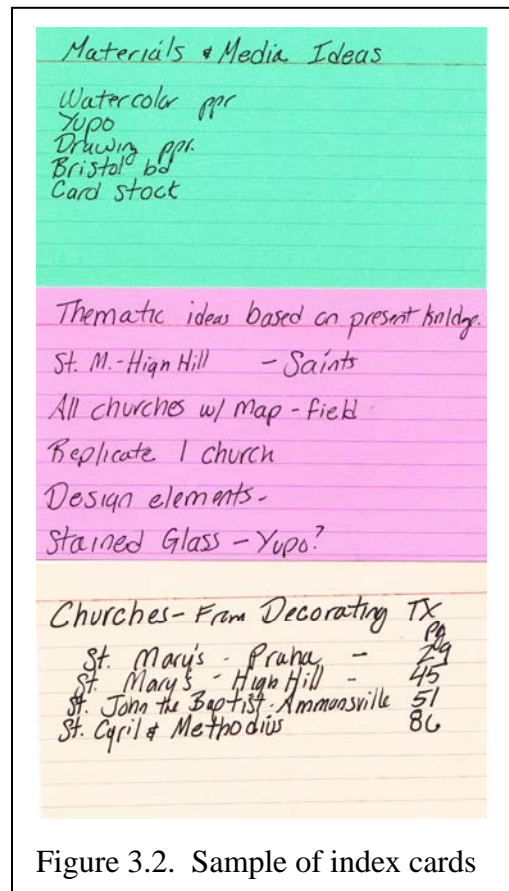 Materials & Media Ideas
Watercolor ppr
Yupo
Drawing ppr.
Bristol bd
Card stock
Thematic ideas based on present knldge.
St. M.-High Hill - Saints
All churches w/ Map - field
Replicate 1 church
Design elements-
Stained Glass - Yupo?
Churches- From Decorating TX
pg
St. Mary's - Praha - 29
St. Mary's - High Hill - 45
St. John the Baptist-Ammansville 51
St. Cyril & Methodius 86
Figure 3.2. Sample of index cards